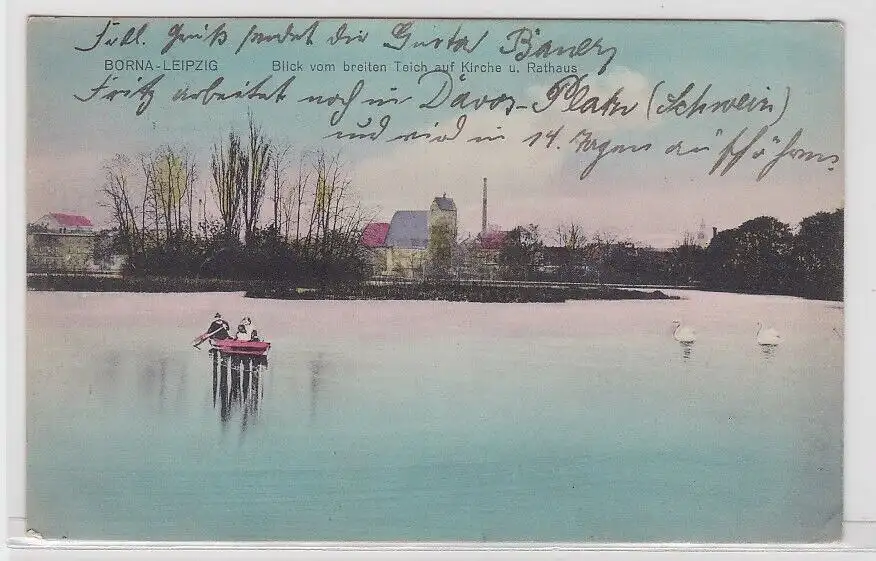 Frdl. Gruß sendet dir Gustav Bauer
BORNA-LEIPZIG Blick vom breiten Teich auf Kirche u. Rathaus
Fritz arbeitet noch in Davos-Platz (Schweiz)
und wird in 14. Tagen